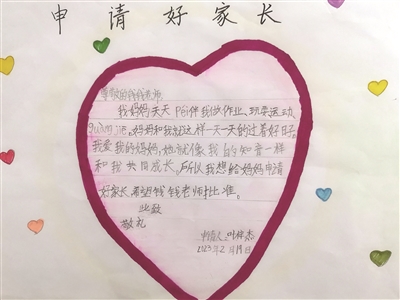 申请好家长
尊敬的钱钱老师
我妈妈天天陪伴我做作业、玩耍运动
妈妈和我就这样一天一天的过着好日子
我爱我的妈妈,她就像我的知音一样
和我共同成长。所以我想给妈妈申请
好家长希望钱钱老师批准。
此致
敬礼
申请人:叶梓杰
2023年2月19日